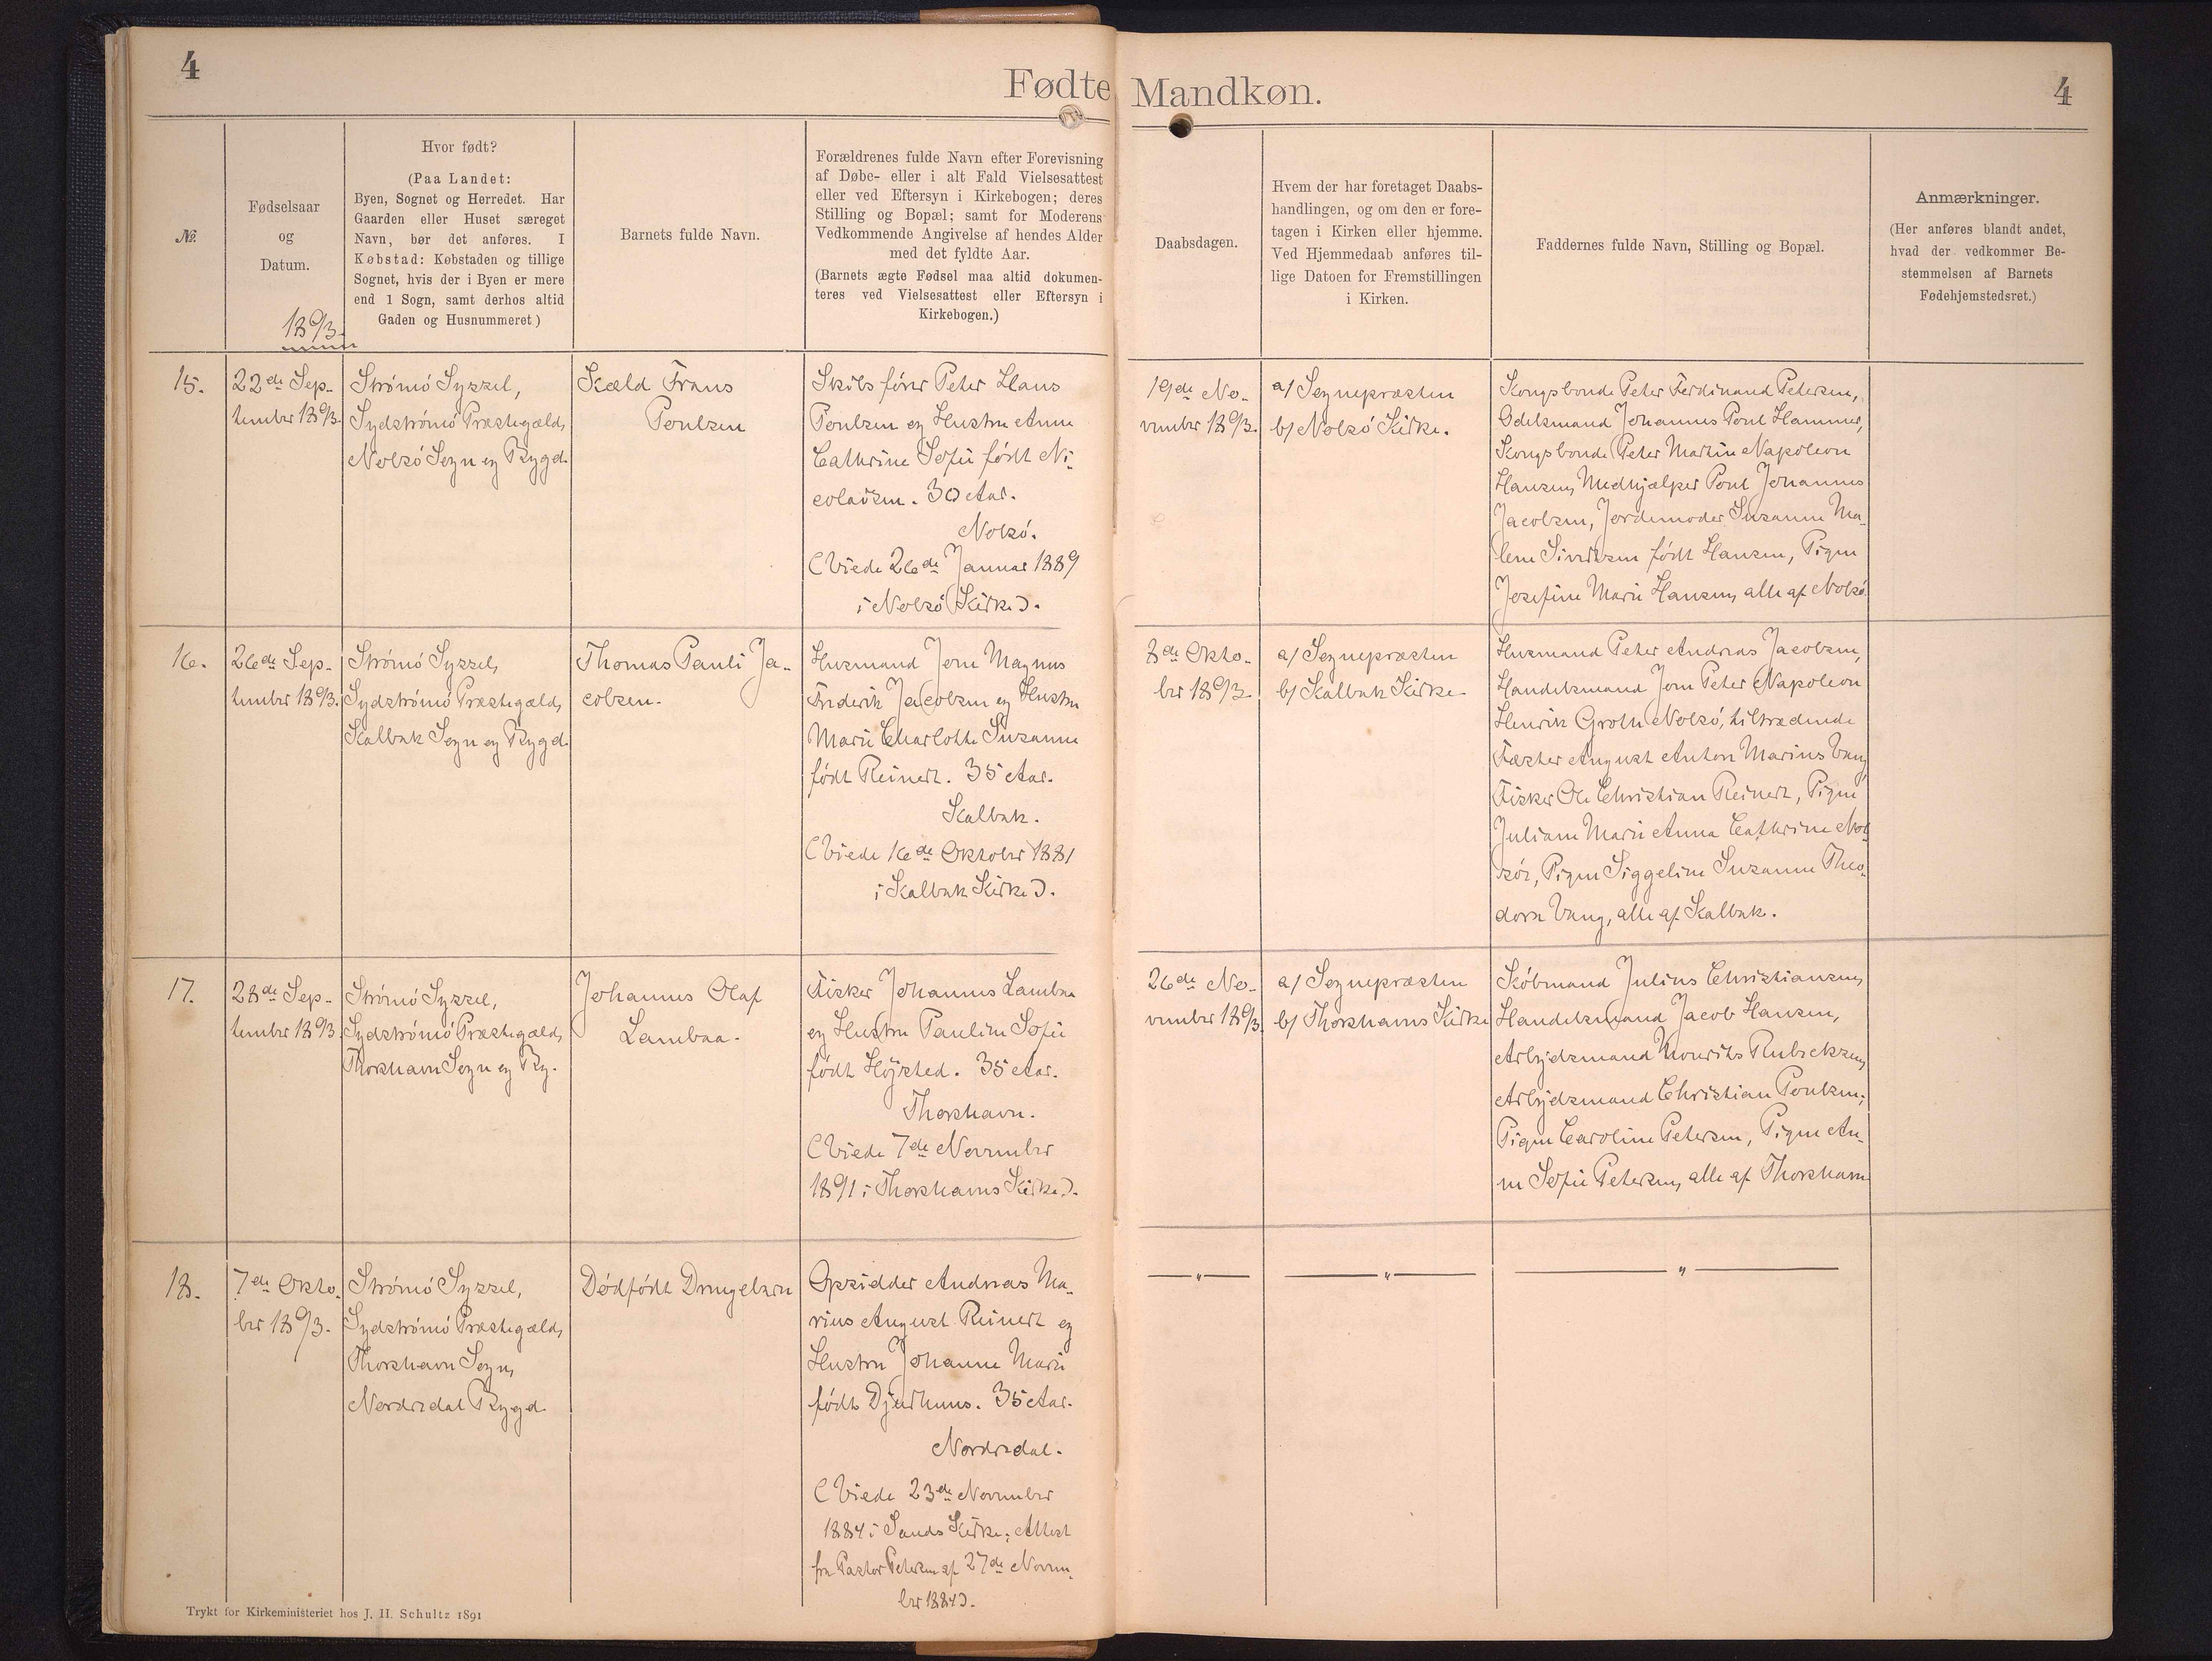 4
Fødte Mandkøn.
4
№
Fødselsaar
og
Datum.
1893.
Hvor født?
(Paa Landet:
Byen, Sognet og Herredet. Har
Gaarden eller Huset særeget
Navn, bør det anføres. I
Købstad: Købstaden og tillige
Sognet, hvis der i Byen er mere
end 1 Sogn, samt derhos altid
Gaden og Husnummeret.)
Barnets fulde Navn.
Forældrenes fulde Navn efter Forevisning
af Døbe- eller i alt Fald Vielsesattest
eller ved Eftersyn i Kirkebogen; deres
Stilling og Bopæl; samt for Moderens
Vedkommende Angivelse af hendes Alder
med det fyldte Aar.
(Barnets ægte Fødsel maa altid dokumen-
teres ved Vielsesattest eller Eftersyn i
Kirkebogen.)
Daabsdagen.
Hvem der har foretaget Daabs-
handlingen, og om den er fore-
tagen i Kirken eller hjemme.
Ved Hjemmedaab anføres til-
lige Datoen for Fremstillingen
i Kirken.
Faddernes fulde Navn, Stilling og Bopæl.
Anmærkninger.
(Her anføres blandt andet,
hvad der vedkommer Be-
stemmelsen af Barnets
Fødehjemstedsret.)
15.
22de Sep-
tember 1893.
Strömö Syssel,
Sydströmö Præstegæld,
Nolsö Sogn og Bygd.
Skæld Frans
Poulsen
Skibsfører Peter Hans
Poulsen og Hustru Anne
Cathrine Sofie födt Ni-
colaisen. 30 Aar.
Nolsö.
(Viede 26de Januar 1889
i Nolsö Kirke).
19de No-
vember 1893.
a) Sognepræsten
b) Nolsö Kirke.
Kongsbonde Peter Ferdinand Petersen,
Odelsmand Johannes Poul Hammer,
Kongsbonde Peter Martin Napoleon
Hansen, Medhjælper Poul Johannes
Jacobsen, Jordemoder Susanne Ma-
lene Sivertsen födt Hansen, Pigen
Josefine Marie Hansen, alle af Nolsö.
16.
26de Sep-
tember 1893.
Strömö Syssel,
Sydströmö Præstegæld,
Kalbak Sogn og Bygd.
Thomas Pauli Ja-
cobsen.
Husmand Jorn Magnus
Frederik Jacobsen og Hustru
Marie Charlotte Susanne
födt Reinert. 35 Aar.
Kalbak.
(Viede 16de Oktober 1881
i Kalbak Kirke).
8de Okto-
ber 1893.
a) Sognepræsten
b) Kalbak Kirke.
Husmand Peter Andreas Jacobsen,
Handelsmand Jorn Peter Napoleon
Henrik Grothe Nolsö, tiltrædende
Fæster August Anton Marius Vang,
Fisker Ole Christian Reinert, Pigen
Juliane Marie Anna Cathrine Nol-
söe, Pigen Siggeline Susanne Theo-
dora Vang, alle af Kalbak.
17.
28de Sep-
tember 1893.
Strömö Syssel,
Sydströmö Præstegæld,
Thorshavn Sogn og By.
Johannes Olaf
Lambaa.
Fisker Johannes Lambaa
og Hustru Pauline Sofie
födt Höjsted. 35 Aar.
Thorshavn.
(Viede 7de November
1891 i Thorshavns Kirke).
26de No-
vember 1893.
a) Sognepræsten
b) Thorshavns Kirke
Köbmand Julius Christiansen,
Handelsmand Jacob Hansen,
Arbejdsmand Mourits Rubeksen,
Arbejdsmand Christian Poulsen,
Pigen Caroline Petersen, Pigen An-
ne Sofie Petersen, alle af Thorshavn
18.
7de Okto-
ber 1893.
Strömö Syssel,
Sydströmö Præstegæld,
Thorshavn Sogn,
Nordredal Bygd.
Dödfödt Drengebarn
Opsidder Andreas Ma-
rius August Reinert og
Hustru Johanne Marie
födt Djurhuus. 35 Aar.
Nordredal.
(Viede 23de November
1884 i Sands Kirke; Attest
fra Pastor Petersen af 27de Novem-
ber 1884).
— " —
— " —
— " —
Trykt for Kirkeministeriet hos J. H. Schultz 1891